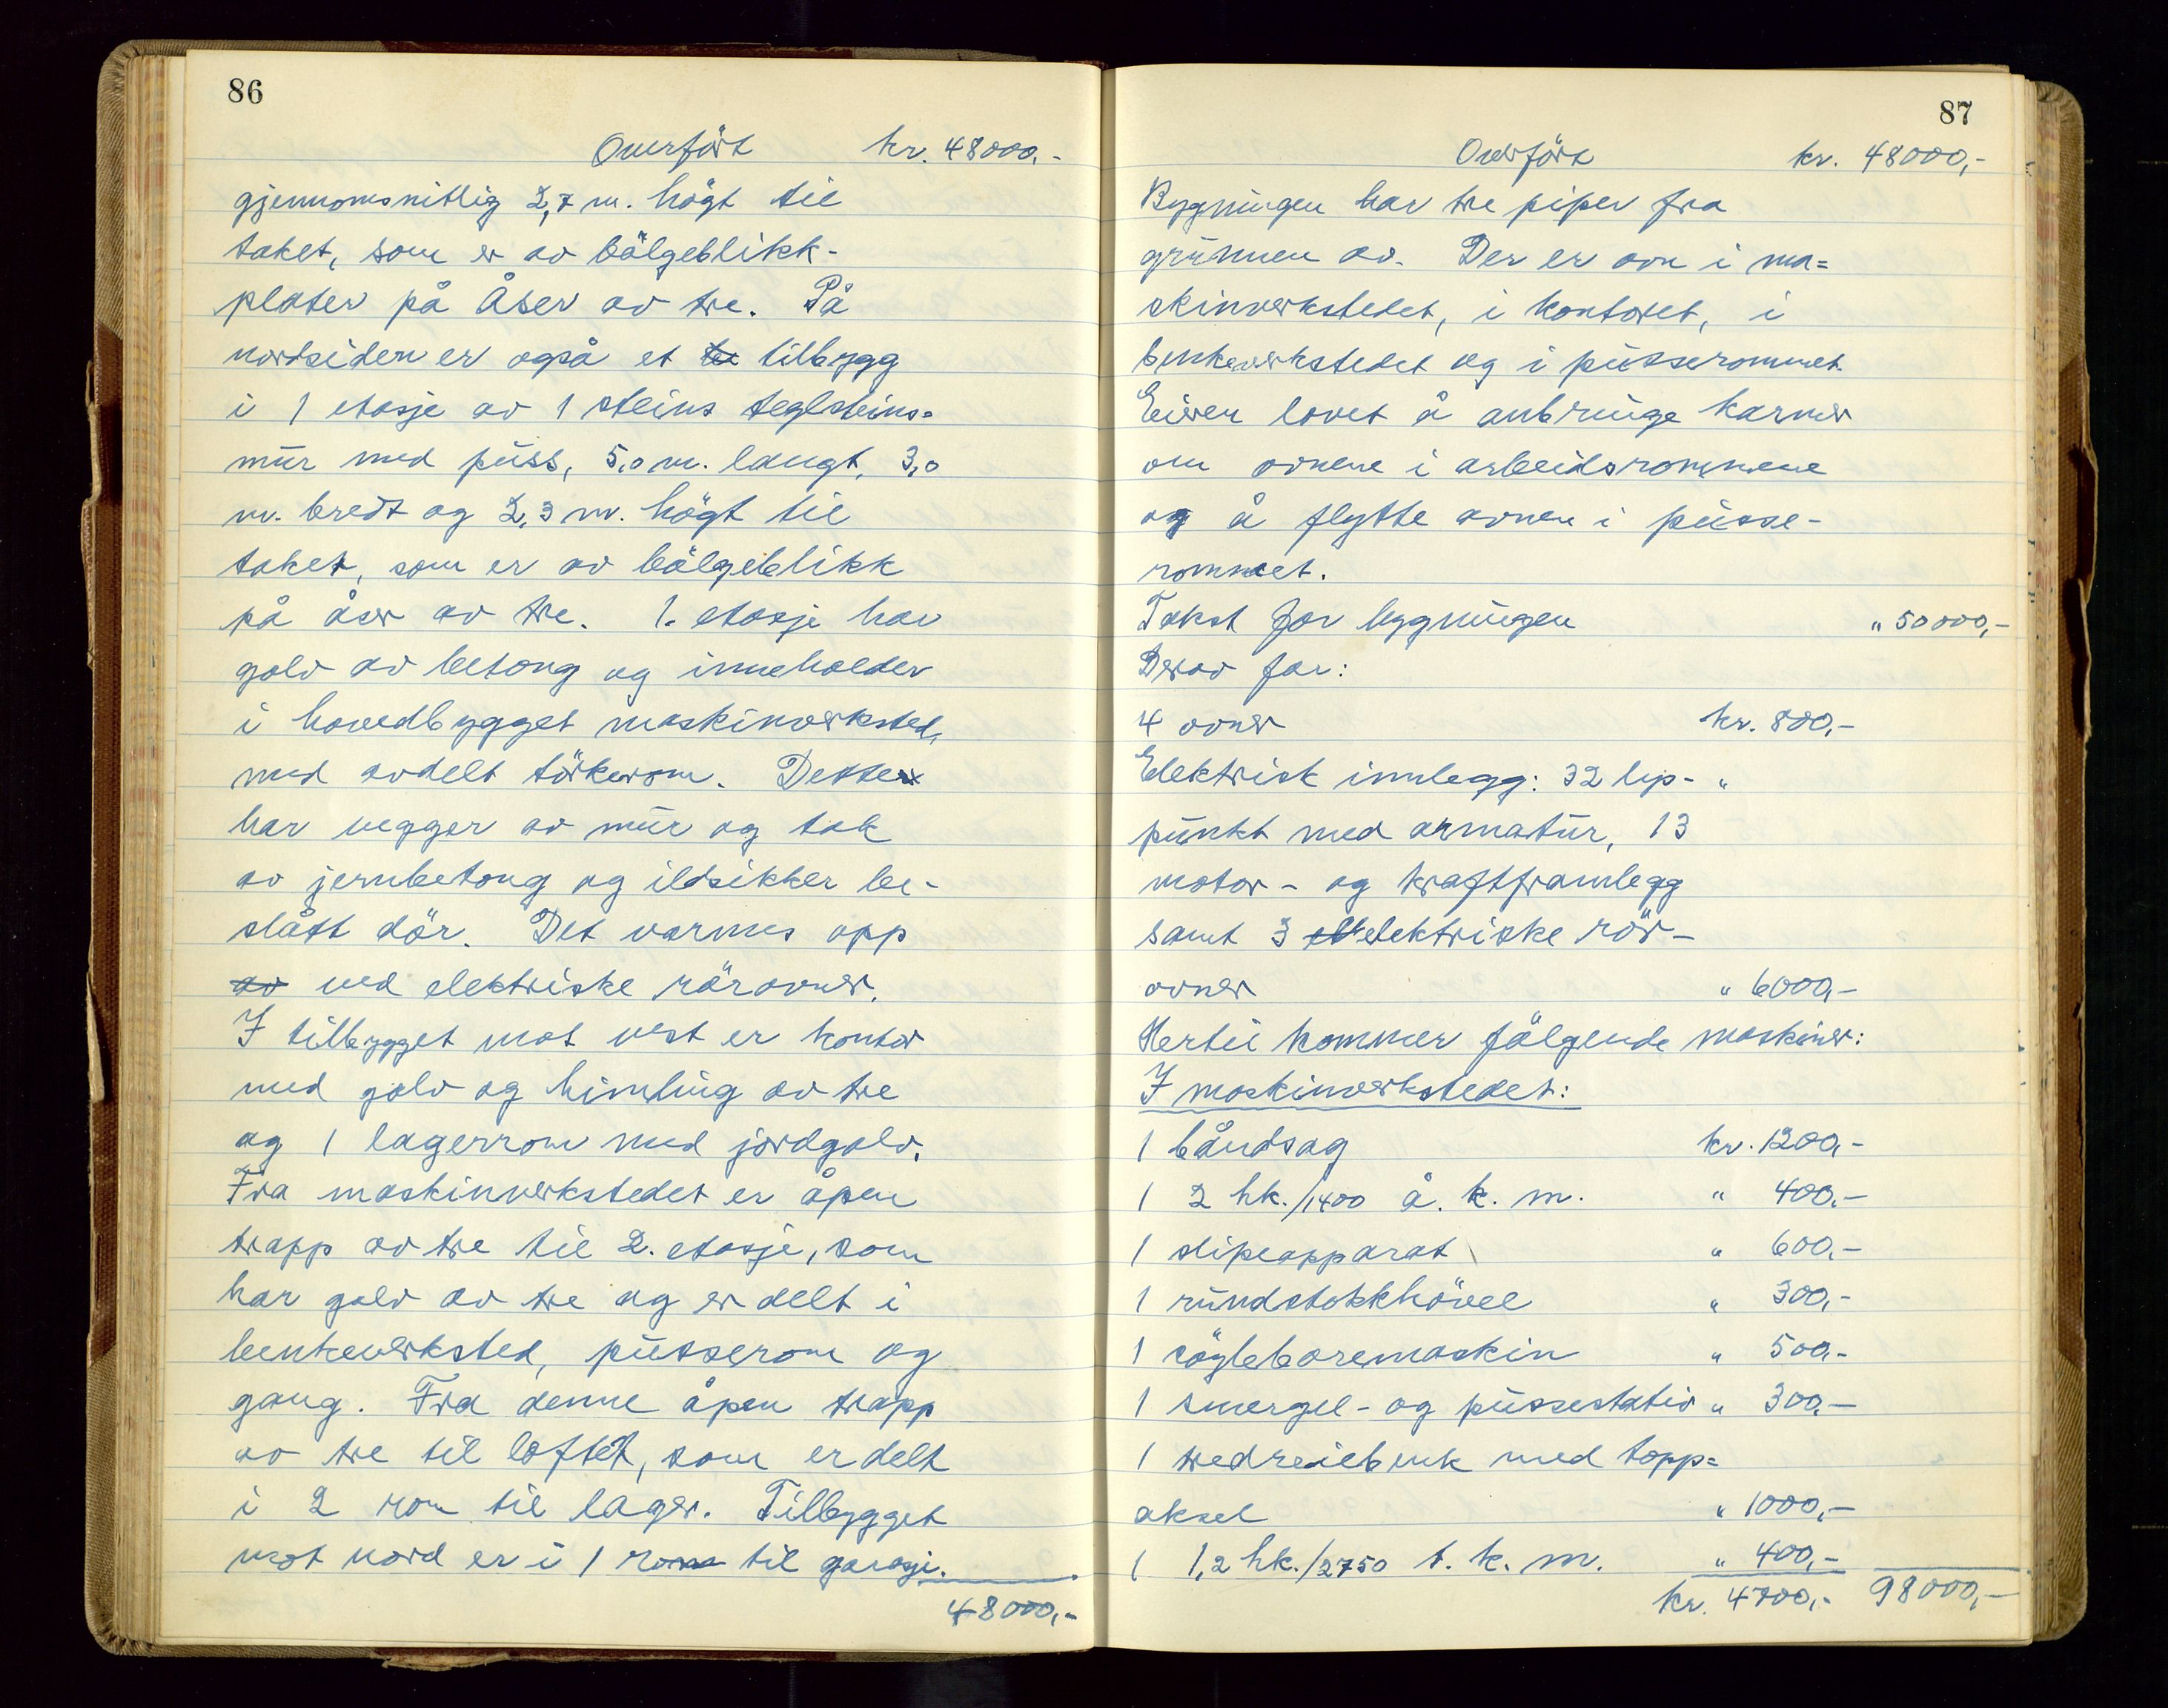 86
Overfört kr. 48000,-
gjennomsnitlig 2,7 m. högt til
taket, som er av bölgeblikk-
plater på åser av tre. På
nordsiden er også et te tilbygg
i 1 etasje av 1 steins teglsteins=
mur med puss, 5,0 m. langt, 3,0
m. bredt og 2,3 m. högt til
taket, som er av bölgeblikk
på åser av tre. 1. etasje har
golv av betong og inneholder
i hovedbygget maskinverksted,
med avdelt törkerom. Dette
har vegger av mur og tak
av jernbetong og ildsikker be-
slått dör. Det varmes opp
av ved elektriske rörovner.
I tilbygget mot vest er kontor
med golv og himling av tre
og 1 lagerrom med jordgolv.
Fra maskinverkstedet er åpen
trapp av tre til 2. etasje, som
har golv av tre og er delt i
benkeverksted, pusserom og
gang. Fra denne åpen trapp
av tre til loftet, som er delt
i 2 rom til lager. Tilbygget
mot nord er i 1 rom til garasje.
48000,-
87
Overfört kr. 48000,-
Bygningen har tre piper fra
grunnen av. Der er ovn i ma=
skinverkstedet, i kontoret, i
benkeverkstedet og i pusserommet.
Eieren lovet å anbringe karmer
om ovnene i arbeidsrommene
og å flytte ovnen i pusse-
rommet.
Takst for bygningen " 50000,-
Derav for:
4 ovner kr. 800,-
Elektrisk innlegg: 32 lys- "
punkt med armatur, 13
motor- og kraftframlegg
samt 3 el elektriske rör-
ovner " 6000,-
Hertil kommer fölgende maskiner:
I maskinverkstedet:
1 båndsag kr. 1200,-
1 2 hk./1400 å. k. m. " 400,-
1 slipeapparat " 600,-
1 rundstokkhövel " 300,-
1 söyleboremaskin " 500,-
1 smergel- og pussestativ " 300,-
1 tredreiebenk med topp=
aksel " 1000,-
1 1,2 hk./2750 t. k. m. " 400,-
kr. 4700,- 98000,-